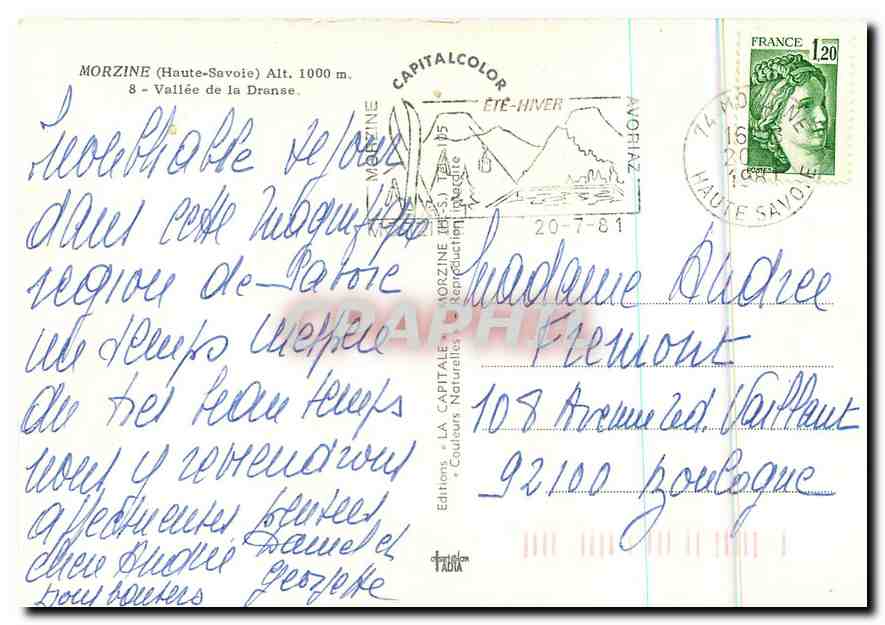 MORZINE (Haute-Savoie) Alt. 1000 m.
8 - Vallée de la Dranse
séjour
dans cette magnifique
région de Savoie
un temps
du très beau temps
nous y reviendrons
affectueuses pensées
chère Andrée Daniel et
Georgette
CAPITALCOLOR
MORZINE
ÉTÉ-HIVER
AVORIAZ
20-7-81
FRANCE 1,20
74 MORZINE
16H
20
1981
HAUTE SAVOIE
Madame Andrée
Fremont
108 Avenue Ed. Vaillant
92100 Boulogne
Editions « LA CAPITALE » MORZINE (H.-S.) Tél. 105
« Couleurs Naturelles » Reproduction interdite
CPAPHIL
TADIA